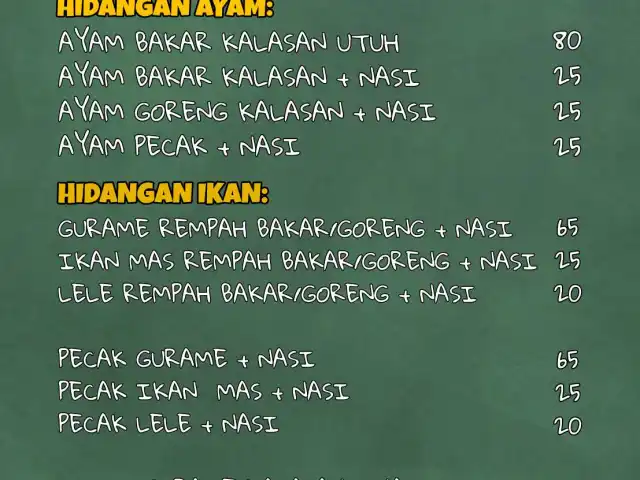 HIDANGAN AYAM:
AYAM BAKAR KALASAN UTUH 80
AYAM BAKAR KALASAN + NASI 25
AYAM GORENG KALASAN + NASI 25
AYAM PECAK + NASI 25
HIDANGAN IKAN:
GURAME REMPAH BAKAR/GORENG + NASI 65
IKAN MAS REMPAH BAKAR/GORENG + NASI 25
LELE REMPAH BAKAR/GORENG + NASI 20
PECAK GURAME + NASI 65
PECAK IKAN MAS + NASI 25
PECAK LELE + NASI 20